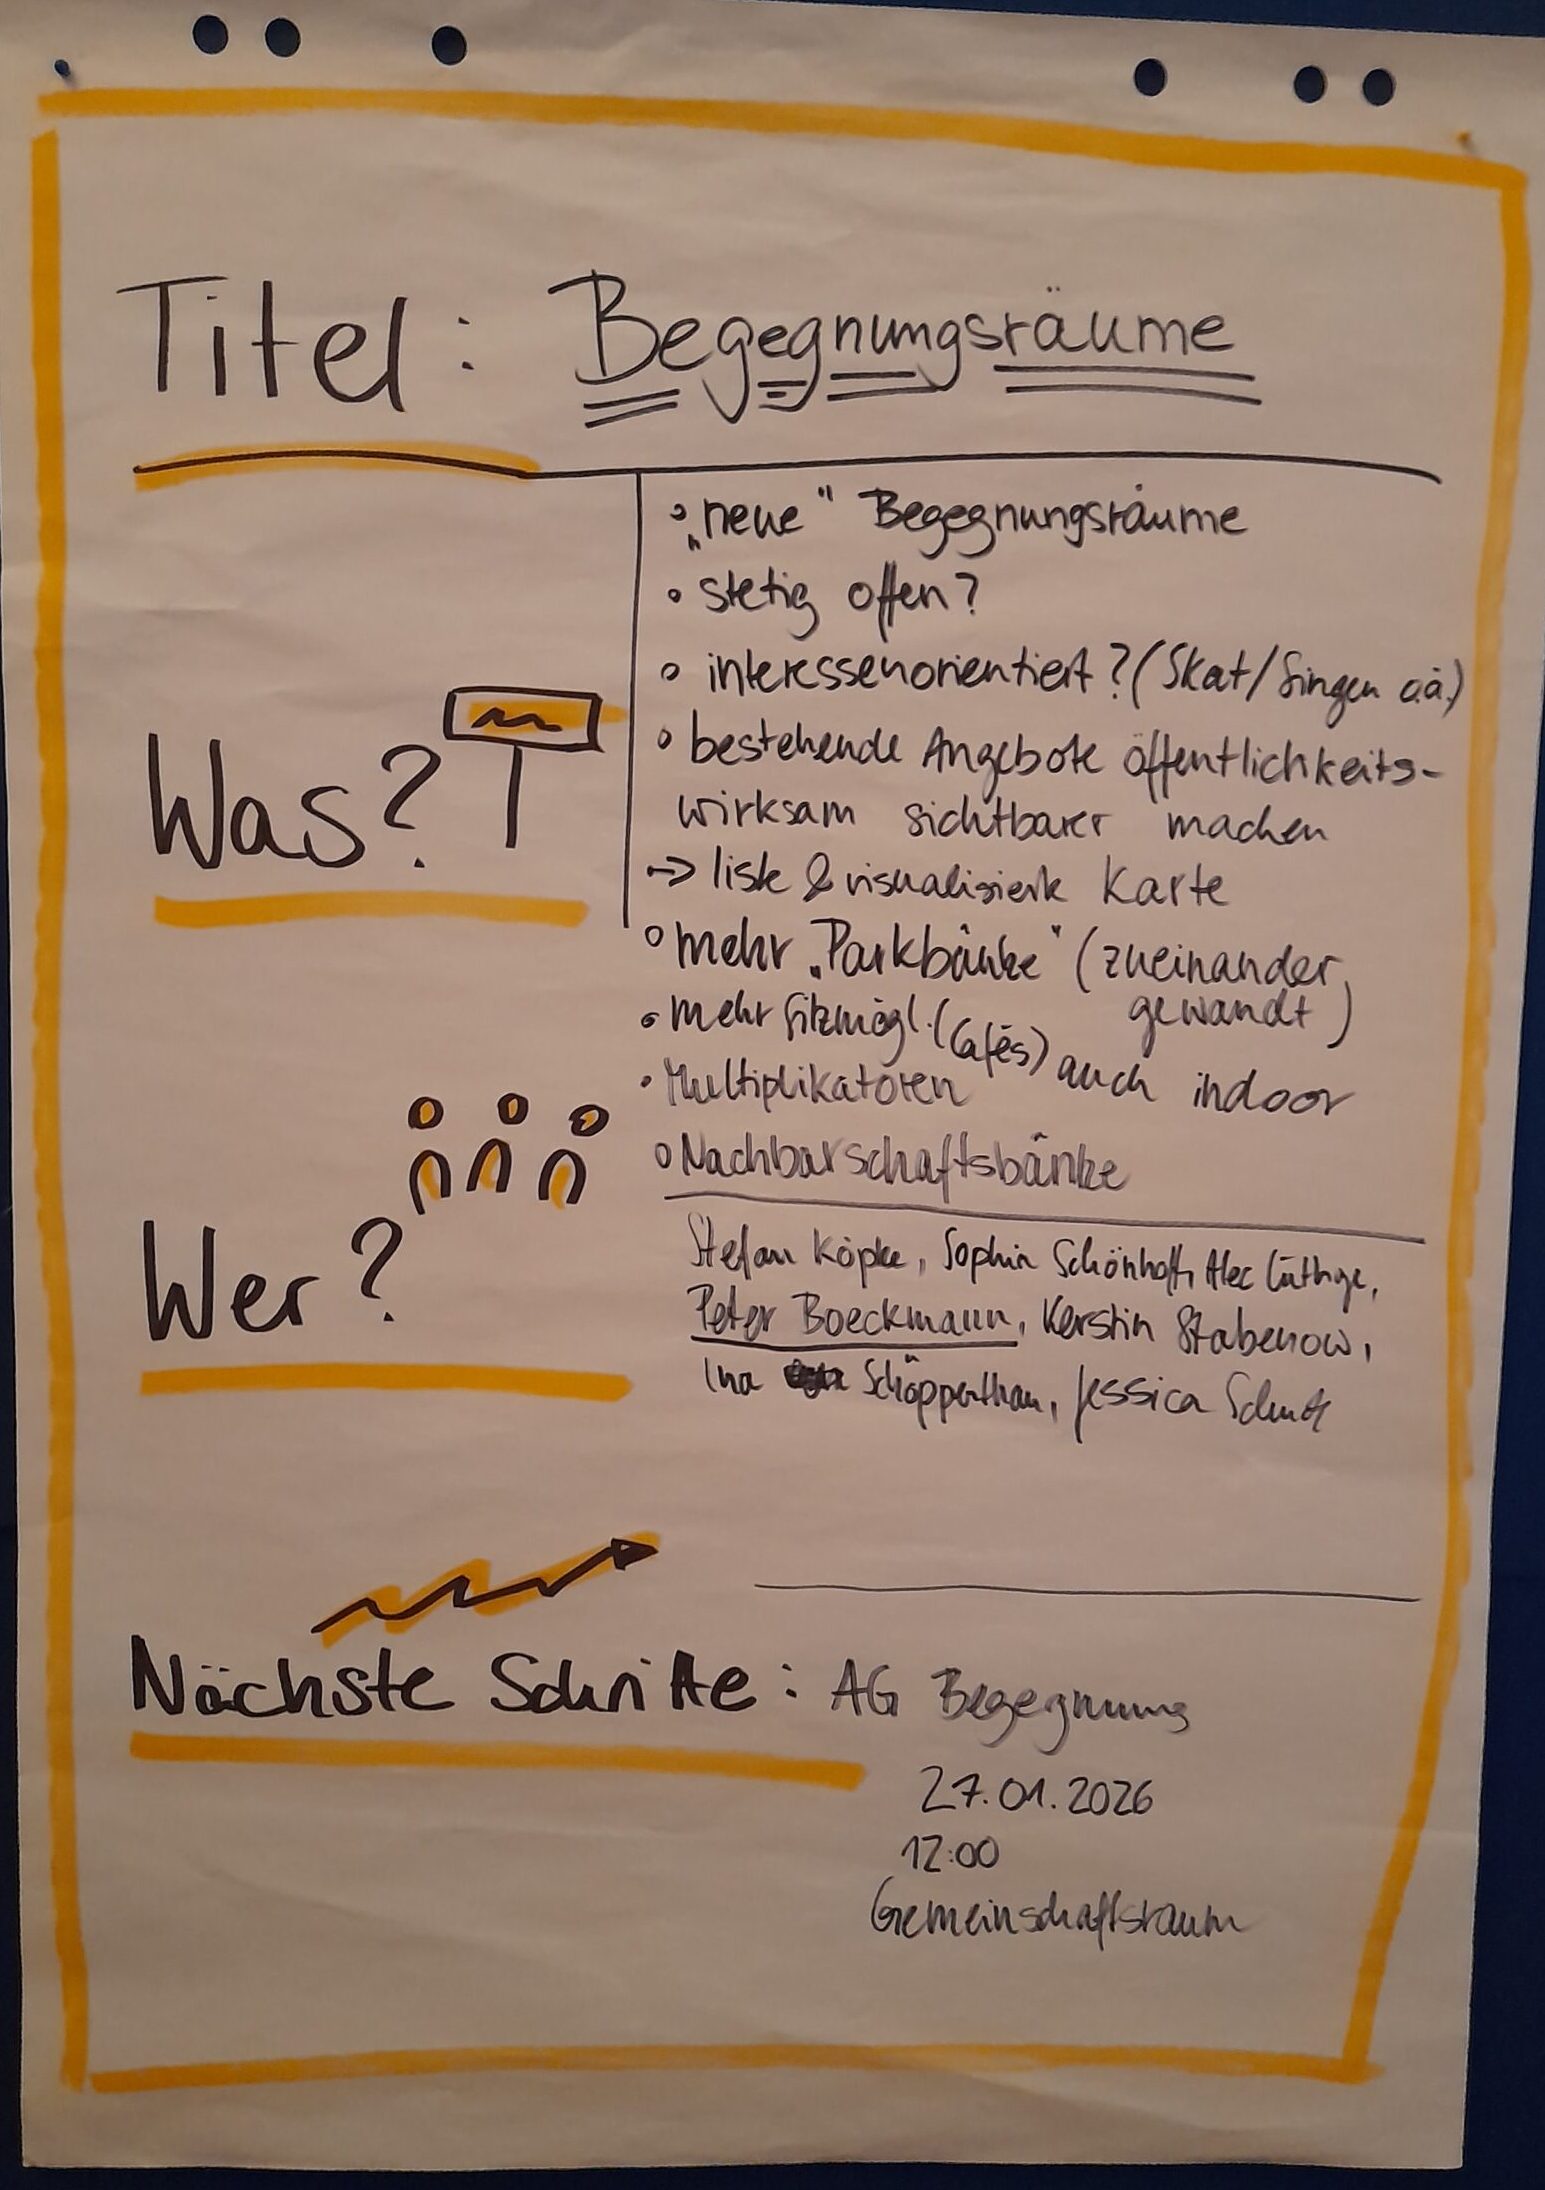 Titel: Begegnungsräume
• „neue" Begegnungsräume
• stetig offen?
• interessenorientiert? (Skat/Singen o.ä.)
• bestehende Angebote öffentlichkeits-
wirksam sichtbarer machen
-> liste & visualisierte Karte
Was?
• mehr „Parkbänke" (zueinander
gewandt)
• mehr Sitzmögl. (Cafés) auch indoor
• Multiplikatoren
• Nachbarschaftsbänke
Wer?
Stefan Köpke, Sophia Schönhoff, Alec Lüthge,
Peter Boeckmann, Kerstin Stabenow,
Ina Schöpperthau, Jessica
Nächste Schritte: AG Begegnung
27.01.2026
12:00
Gemeinschaftsraum